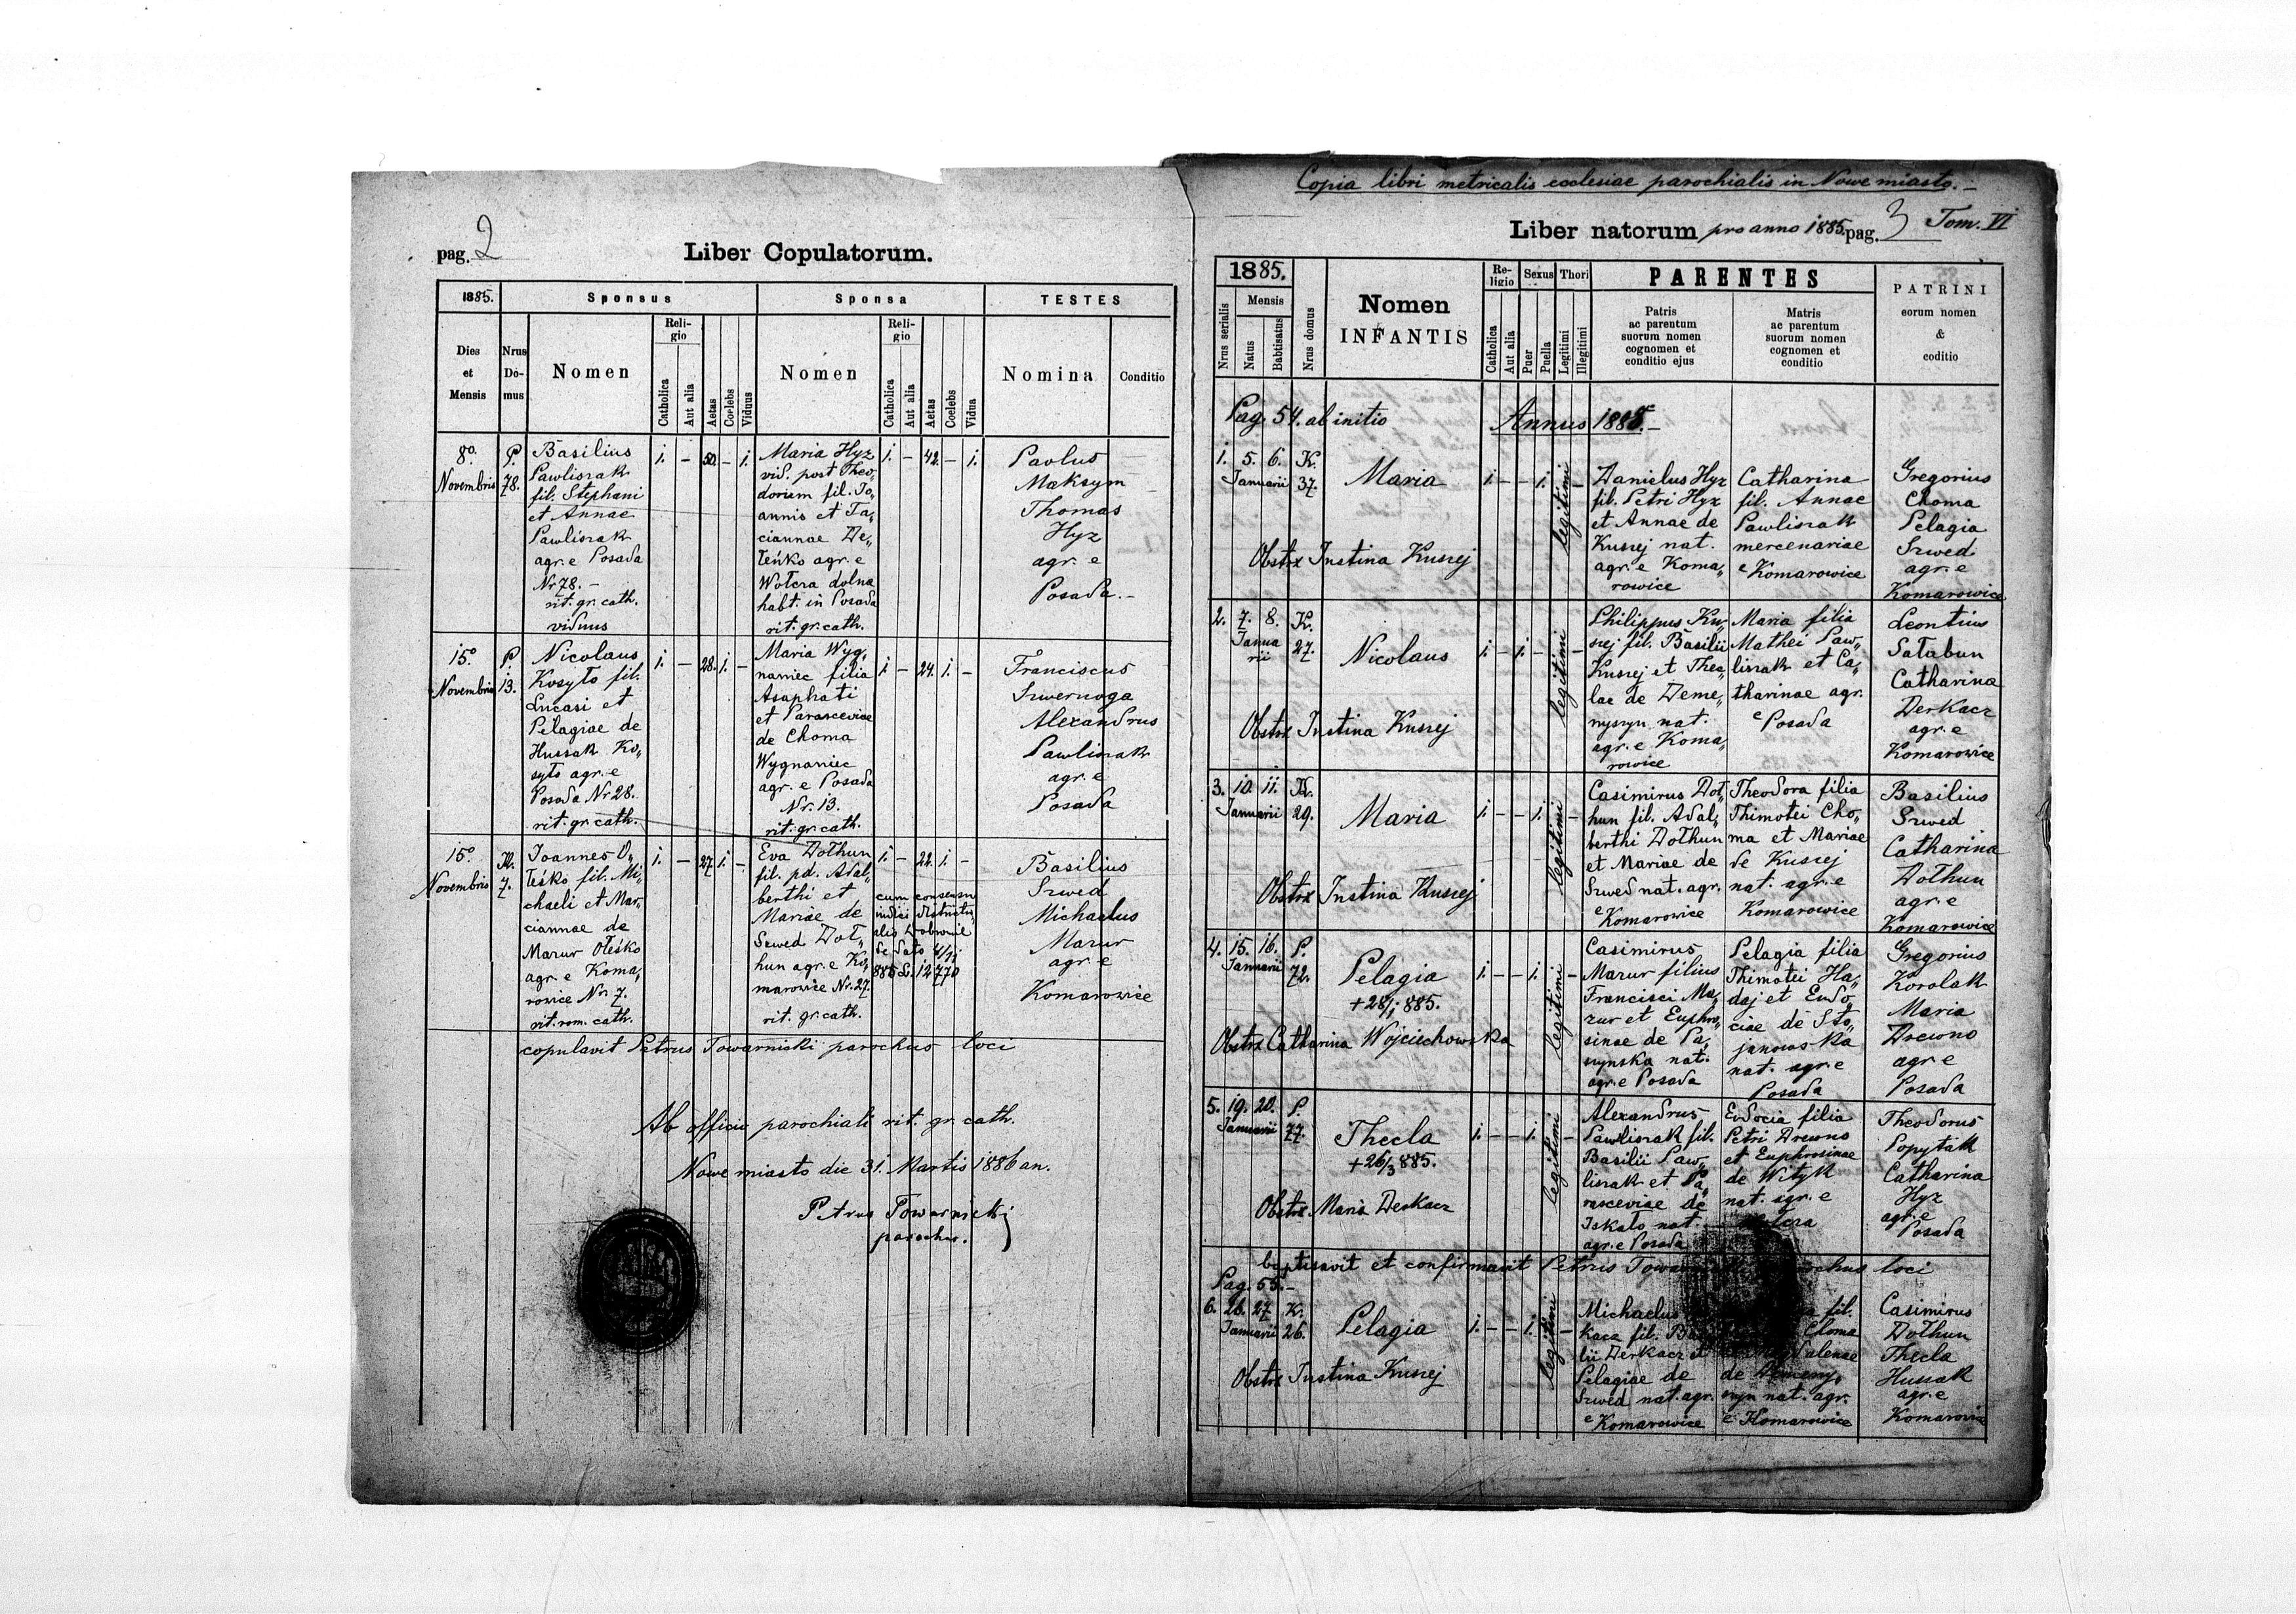 pag. 2
Liber Copulatorum.
1885.
Sponsus
Sponsa
TESTES
Dies
et
Mensis
Nrus
Do-
mus
Nomen
Reli-
gio
Catholica
Aut alia
Aetas
Coelebs
Viduus
Nomen
Reli-
gio
Catholica
Aut alia
Aetas
Coelebs
Vidua
Nomina
Conditio
8º
Novembris
P.
78.
Basilius
Pawliszak
fil. Stephani
et Annae
Pawliszak
agr. e Posada
Nr 78. –
rit. gr. cath.
viduus
1. – 50. – 1.
Maria Hyz
vid. post Theo„
dorum fil. Jo„
annis et Ta„
ciannae De„
teńko agr. e
Wołcza dolna
habt. in Posada
rit. gr. cath.
1. – 42. – 1.
Paolus
Maksym
Thomas
Hyz
agr. e
Posada. –
15º
Novembris
P.
13.
Nicolaus
Kosyło fil.
Lucasi et
Pelagiae de
Hussak Ko„
syło agr. e
Posada Nr 28.
rit. gr. cath.
1. – 28. 1. –
Maria Wyg„
naniec filia
Asaphati
et Parasceviae
de Choma
Wygnaniec
agr. e Posada
Nr. 13.
rit. gr. cath.
1 – 24. 1. –
Franciscus
Szwernoga
Alexandrus
Pawliszak
agr. e
Posada
15º
Novembris
K.
7.
Joannes O„
leśko fil. Mi„
chaeli et Mar„
ciannae de
Mazur Oleśko
agr. e Koma„
rowice Nr. 7.
rit. rom. cath.
1. – 27. 1. –
Eva Dołhun
fil. pd. Adal„
berthi et
Mariae de
Szwed Doł„
hun agr. e Ko„
marowice Nr. 27.
rit. gr. cath.
1. – 22. 1. –
cum consensu
iudici districtu„
alis Dobromil
de dato 4/11
885 L. 12770
Basilius
Szwed
Michaelus
Mazur
agr. e
Komarowice
copulavit Petrus Towarnicki parochus loci
Ab officio parochiali rit. gr. cath.
Nowe miasto die 31. Martis 1886 an.
Petrus Towarnicki
parochus.
Copia libri metricalis ecclesiae parochialis in Nowe miasto. –
Liber natorum pro anno 1885. pag. 3 Tom. VI
1885.
Nrus serialis
Mensis
Natus
Babtisatus
Nrus domus
Nomen
INFANTIS
Re-
ligio
Catholica
Aut alia
Sexus
Puer
Puella
Thori
Legitimi
Illegitimi
PARENTES
Patris
ac parentum
suorum nomen
cognomen et
conditio ejus
Matris
ac parentum
suorum nomen
cognomen et
conditio
PATRINI
eorum nomen
&
coditio
Pag. 54. ab initio
Annus 1885. –
1. 5. 6.
Januarii
K.
37.
Maria
1. – – 1. legitimi –
Danielus Hyz
fil. Petri Hyz
et Annae de
Kuszej nat.
agr. e Koma„
rowice
Catharina
fil. Annae
Pawliszak
mercenariae
e Komarowice
Gregorius
Choma
Pelagia
Szwed
agr. e
Komarowice
Obstrx Justina Kuszej
2. 7. 8.
Janua
rii
K.
27.
Nicolaus
1. – 1. – legitimi –
Philippus Ku„
szej fil. Basilii
Kuszej et The„
lae de Deme„
nyszyn nat.
agr. e Koma„
rowice
Maria filia
Mathei Paw„
liszak et Ca„
tharinae agr.
e Posada
Leontius
Satabun
Catharina
Derkacz
agr. e
Komarowice
Obstrx Justina Kuszej
3. 10. 11.
Januarii
K.
29.
Maria
1. – – 1. legitimi –
Casimirus Doł„
hun fil. Adal„
berthi Dołhun
et Mariae de
Szwed nat. agr.
e Komarowice
Theodora filia
Thimotei Cho„
ma et Mariae
de Kuszej
nat. agr. e
Komarowice
Basilius
Szwed
Catharina
Dołhun
agr. e
Komarowice
Obstrx Justina Kuszej
4. 15. 16.
Januarii
P.
72.
Pelagia
+ 28/1 885.
1. – – 1. legitimi –
Casimirus
Mazur filius
Francisci Ma„
zur et Euphro„
sinae de Pa„
szynska nat.
agr. e Posada
Pelagia filia
Thimotei Ha„
daj et Eudo„
ciae de Sto„
janowska
nat. agr. e
Posada
Gregorius
Korolak
Maria
Drewno
agr. e
Posada
Obstrx Catharina Wojciechowska
5. 19. 20.
Januarii
P.
77.
Thecla
+ 26/3 885.
1. – – 1. legitimi –
Alexandrus
Pawliszak fil.
Basilii Paw„
liszak et Pa„
rasceviae de
Iskało nat.
agr. e Posada
Eudocia filia
Petri Drewno
et Euphrosinae
de Wityk
nat. agr. e
Theodorus
Popytak
Catharina
Hyz
agr. e
Posada
Obstrx Maria Derkacz
baptisavit et confirmavit Petrus parochus loci
Pag. 55. –
6. 26. 27.
Januarii
K.
26.
Pelagia
1. – – 1. legitimi –
Michaelus
kacz fil. Basi
lii Derkacz et
Pelagiae de
Szwed nat. agr.
e Komarowice
fil.
Choma
et Magdalenae
de Demeny„
szyn nat. agr.
e Komarowice
Casimirus
Dołhun
Thecla
Hussak
agr. e
Komarowice
Obstrx Justina Kuszej